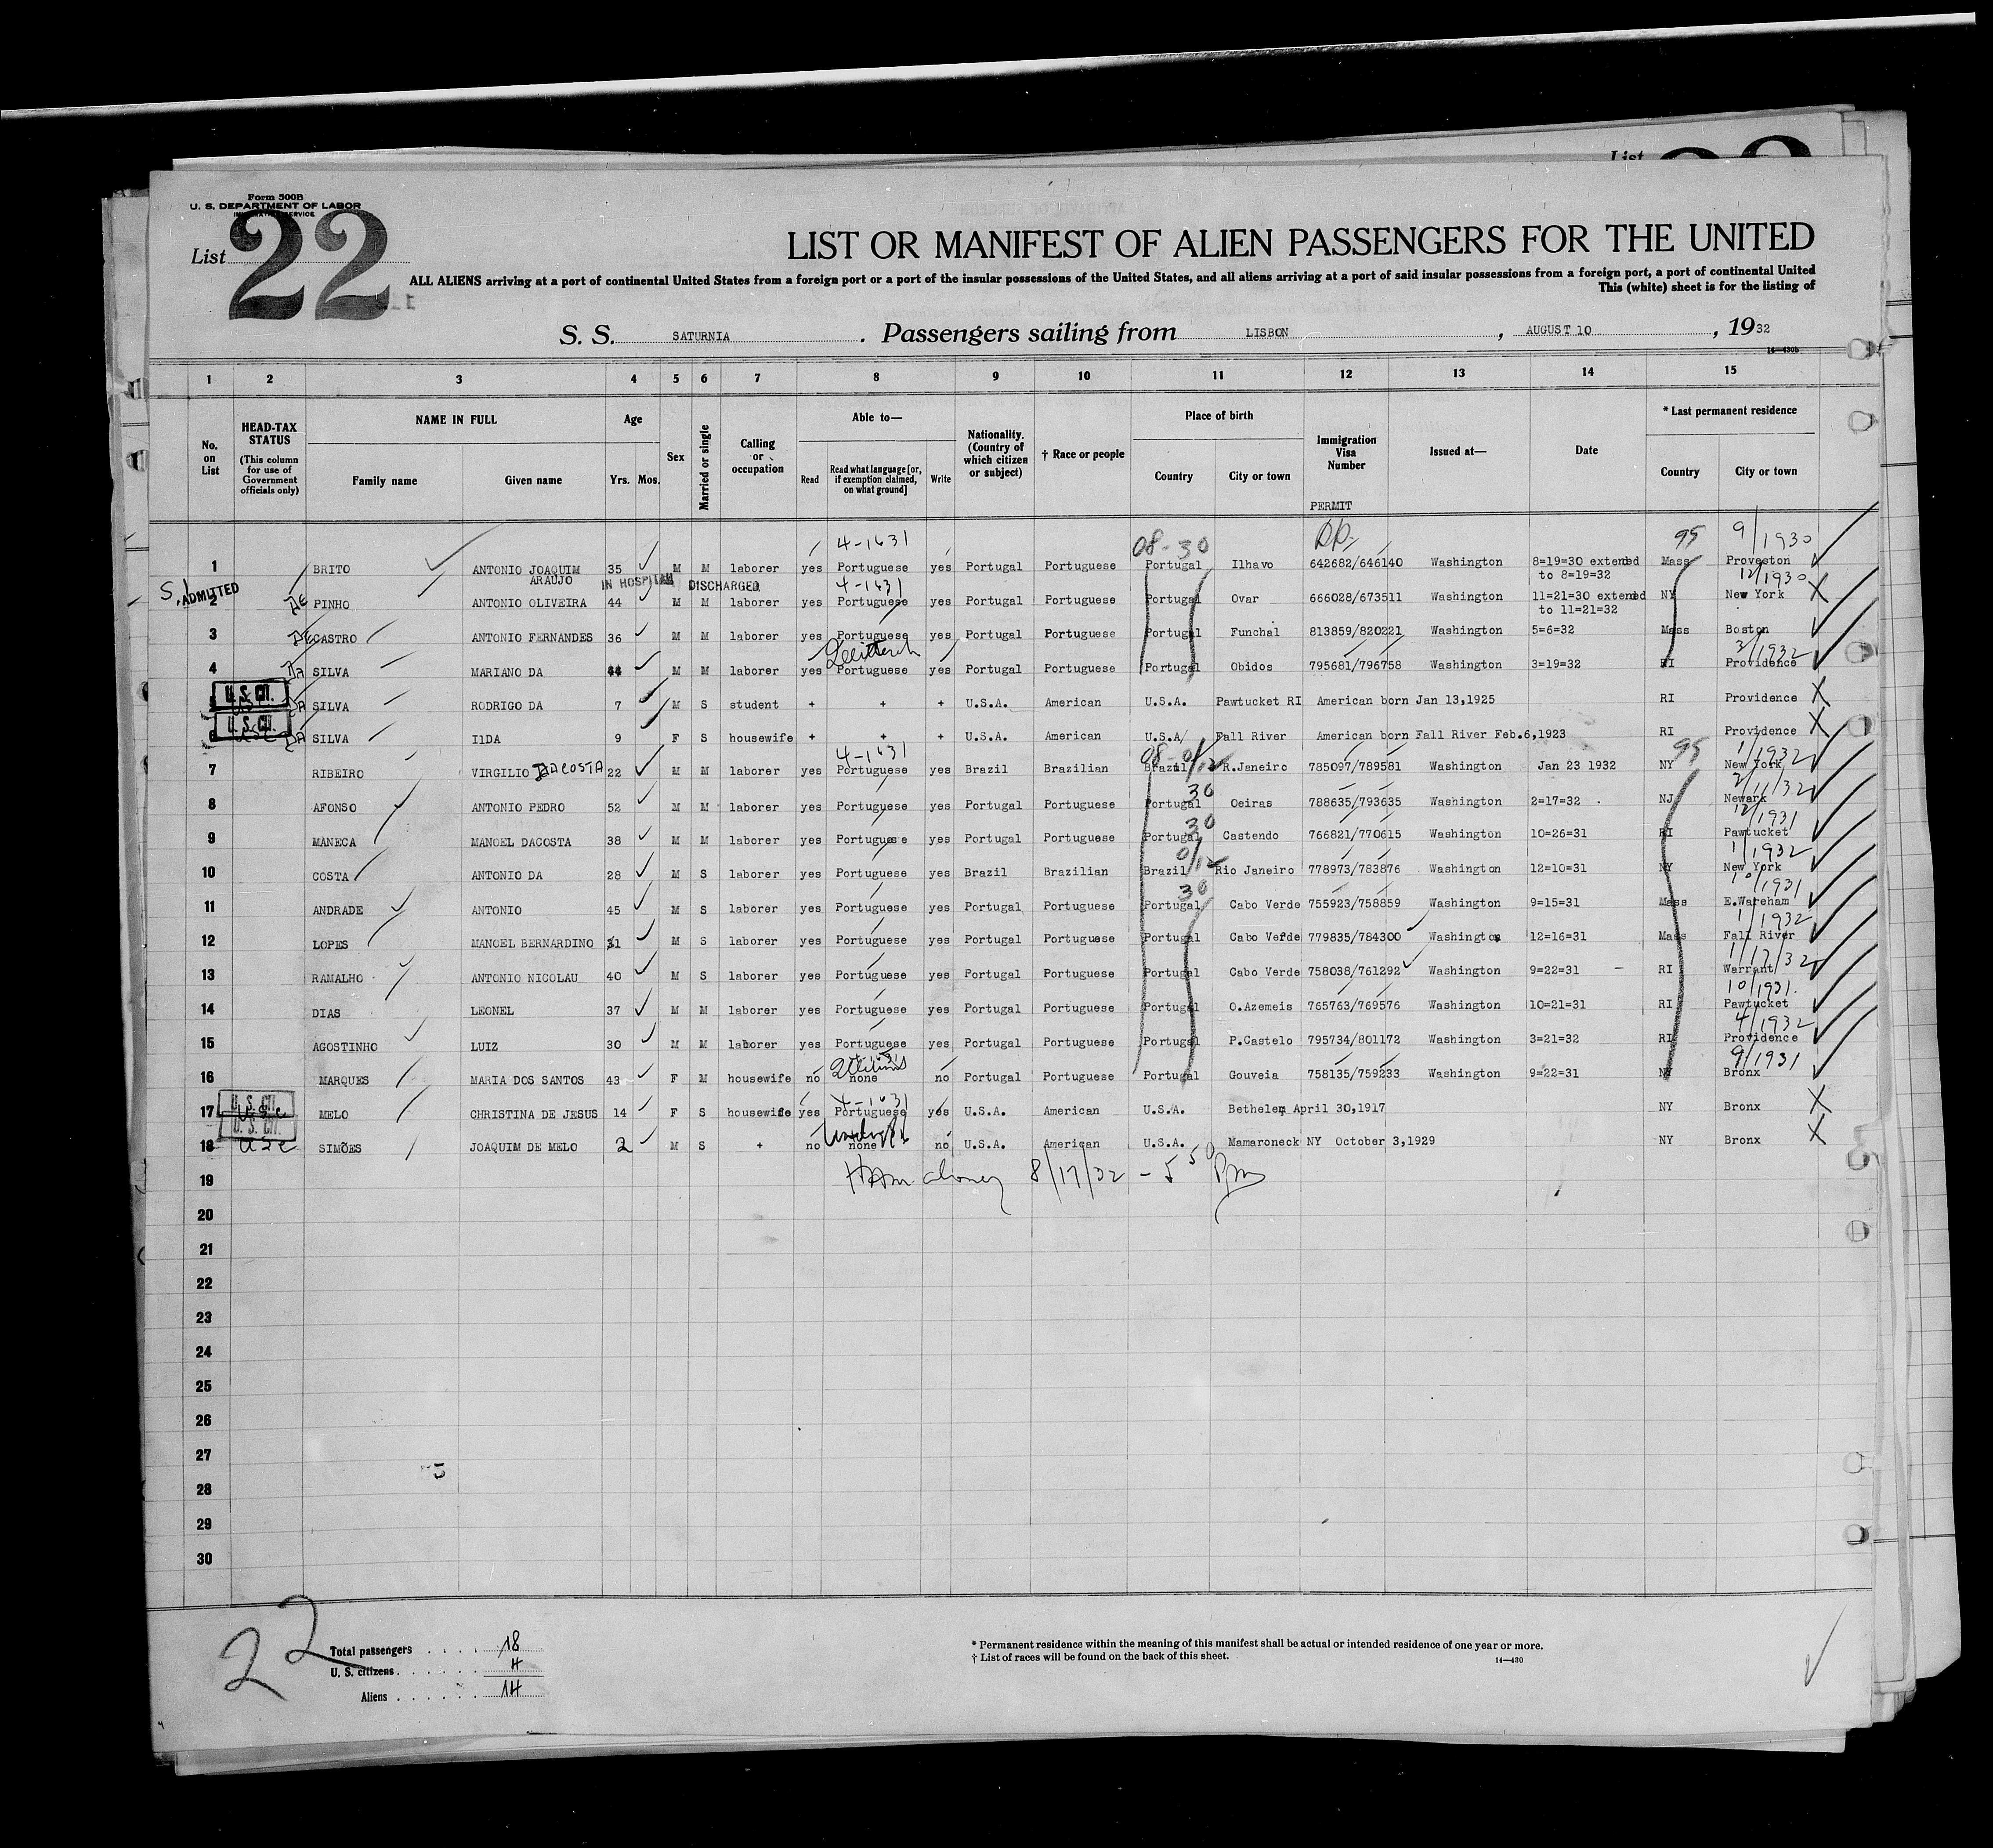 List
Form 500B
U. S. DEPARTMENT OF LABOR
IMMIGRATION SERVICE
List 22
LIST OR MANIFEST OF ALIEN PASSENGERS FOR THE UNITED
ALL ALIENS arriving at a port of continental United States from a foreign port or a port of the insular possessions of the United States, and all aliens arriving at a port of said insular possessions from a foreign port, a port of continental United
This (white) sheet is for the listing of
S. S. SATURNIA . Passengers sailing from LISBON , AUGUST 10 , 1932
14—430b
1 2 3 4 5 6 7 8 9 10 11 12 13 14 15
No. on List
HEAD-TAX STATUS (This column for use of Government officials only)
NAME IN FULL Family name Given name
Age Yrs. Mos.
Sex
Married or single
Calling or occupation
Able to— Read Read what language [or, if exemption claimed, on what ground] Write
Nationality. (Country of which citizen or subject)
† Race or people
Place of birth Country City or town
Immigration Visa Number PERMIT
Issued at—
Date
* Last permanent residence Country City or town
4-1631 08-30 95 9/1930
1 BRITO ANTONIO JOAQUIM 35 M M laborer yes Portuguese yes Portugal Portuguese Portugal Ilhavo 642682/646140 Washington 8=19=30 extended Mass Proveston
ARAUJO IN HOSPITAL DISCHARGED 4-1631 to 8=19=32 12/1930
ADMITTED
2 PINHO ANTONIO OLIVEIRA 44 M M laborer yes Portuguese yes Portugal Portuguese Portugal Ovar 666028/673511 Washington 11=21=30 extended NY New York X
to 11=21=32
3 CASTRO ANTONIO FERNANDES 36 M M laborer yes Portuguese yes Portugal Portuguese Portugal Funchal 813859/820221 Washington 5=6=32 Mass Boston
3/1932
4 SILVA MARIANO DA 44 M M laborer yes Portuguese yes Portugal Portuguese Portugal Obidos 795681/796758 Washington 3=19=32 RI Providence
U. S. CIT.
5 SILVA RODRIGO DA 7 M S student + + + U.S.A. American U.S.A. Pawtucket RI American born Jan 13,1925 RI Providence X
U. S. CIT.
6 SILVA IlDA 9 F S housewife + + + U.S.A. American U.S.A/ Fall River American born Fall River Feb.6,1923 RI Providence X
4-1631 95 1/1932
7 RIBEIRO VIRGILIO DACOSTA 22 M M laborer yes Portuguese yes Brazil Brazilian Brazil R.Janeiro 785097/789581 Washington Jan 23 1932 NY New York
30 2/11/32
8 AFONSO ANTONIO PEDRO 52 M M laborer yes Portuguese yes Portugal Portuguese Portugal Oeiras 788635/793635 Washington 2=17=32 NJ Newark
30 12/1931
9 MANECA MANOEL DACOSTA 38 M M laborer yes Portuguese yes Portugal Portuguese Portugal Castendo 766821/770615 Washington 10=26=31 RI Pawtucket
1/1932
10 COSTA ANTONIO DA 28 M S laborer yes Portuguese yes Brazil Brazilian Brazil Rio Janeiro 778973/783876 Washington 12=10=31 NY New York
30 10/1931
11 ANDRADE ANTONIO 45 M S laborer yes Portuguese yes Portugal Portuguese Portugal Cabo Verde 755923/758859 Washington 9=15=31 Mass E.Wareham
1/1932
12 LOPES MANOEL BERNARDINO 31 M S laborer yes Portuguese yes Portugal Portuguese Portugal Cabo Verde 779835/784300 Washington 12=16=31 Mass Fall River
1/17/32
13 RAMALHO ANTONIO NICOLAU 40 M S laborer yes Portuguese yes Portugal Portuguese Portugal Cabo Verde 758038/761292 Washington 9=22=31 RI Warrant
10/1931.
14 DIAS LEONEL 37 M M laborer yes Portuguese yes Portugal Portuguese Portugal O.Azemeis 765763/769576 Washington 10=21=31 RI Pawtucket
4/1932
15 AGOSTINHO LUIZ 30 M M laborer yes Portuguese yes Portugal Portuguese Portugal P.Castelo 795734/801172 Washington 3=21=32 RI Providence
9/1931
16 MARQUES MARIA DOS SANTOS 43 F M housewife no none no Portugal Portuguese Portugal Gouveia 758135/759233 Washington 9=22=31 NY Bronx
U. S. CIT. 4-1631
17 MELO CHRISTINA DE JESUS 14 F S housewife yes Portuguese yes U.S.A. American U.S.A. Bethelem April 30,1917 NY Bronx X
U. S. CIT.
18 USC SIMÕES JOAQUIM DE MELO 2 M S + no none no U.S.A. American U.S.A. Mamaroneck NY October 3,1929 NY Bronx X
19 8/17/32 - 5 50 Pm
20
21
22
23
24
25
26
27
28
29
30
22
Total passengers 18
U. S. citizens 4
Aliens 14
* Permanent residence within the meaning of this manifest shall be actual or intended residence of one year or more.
† List of races will be found on the back of this sheet.
14—430